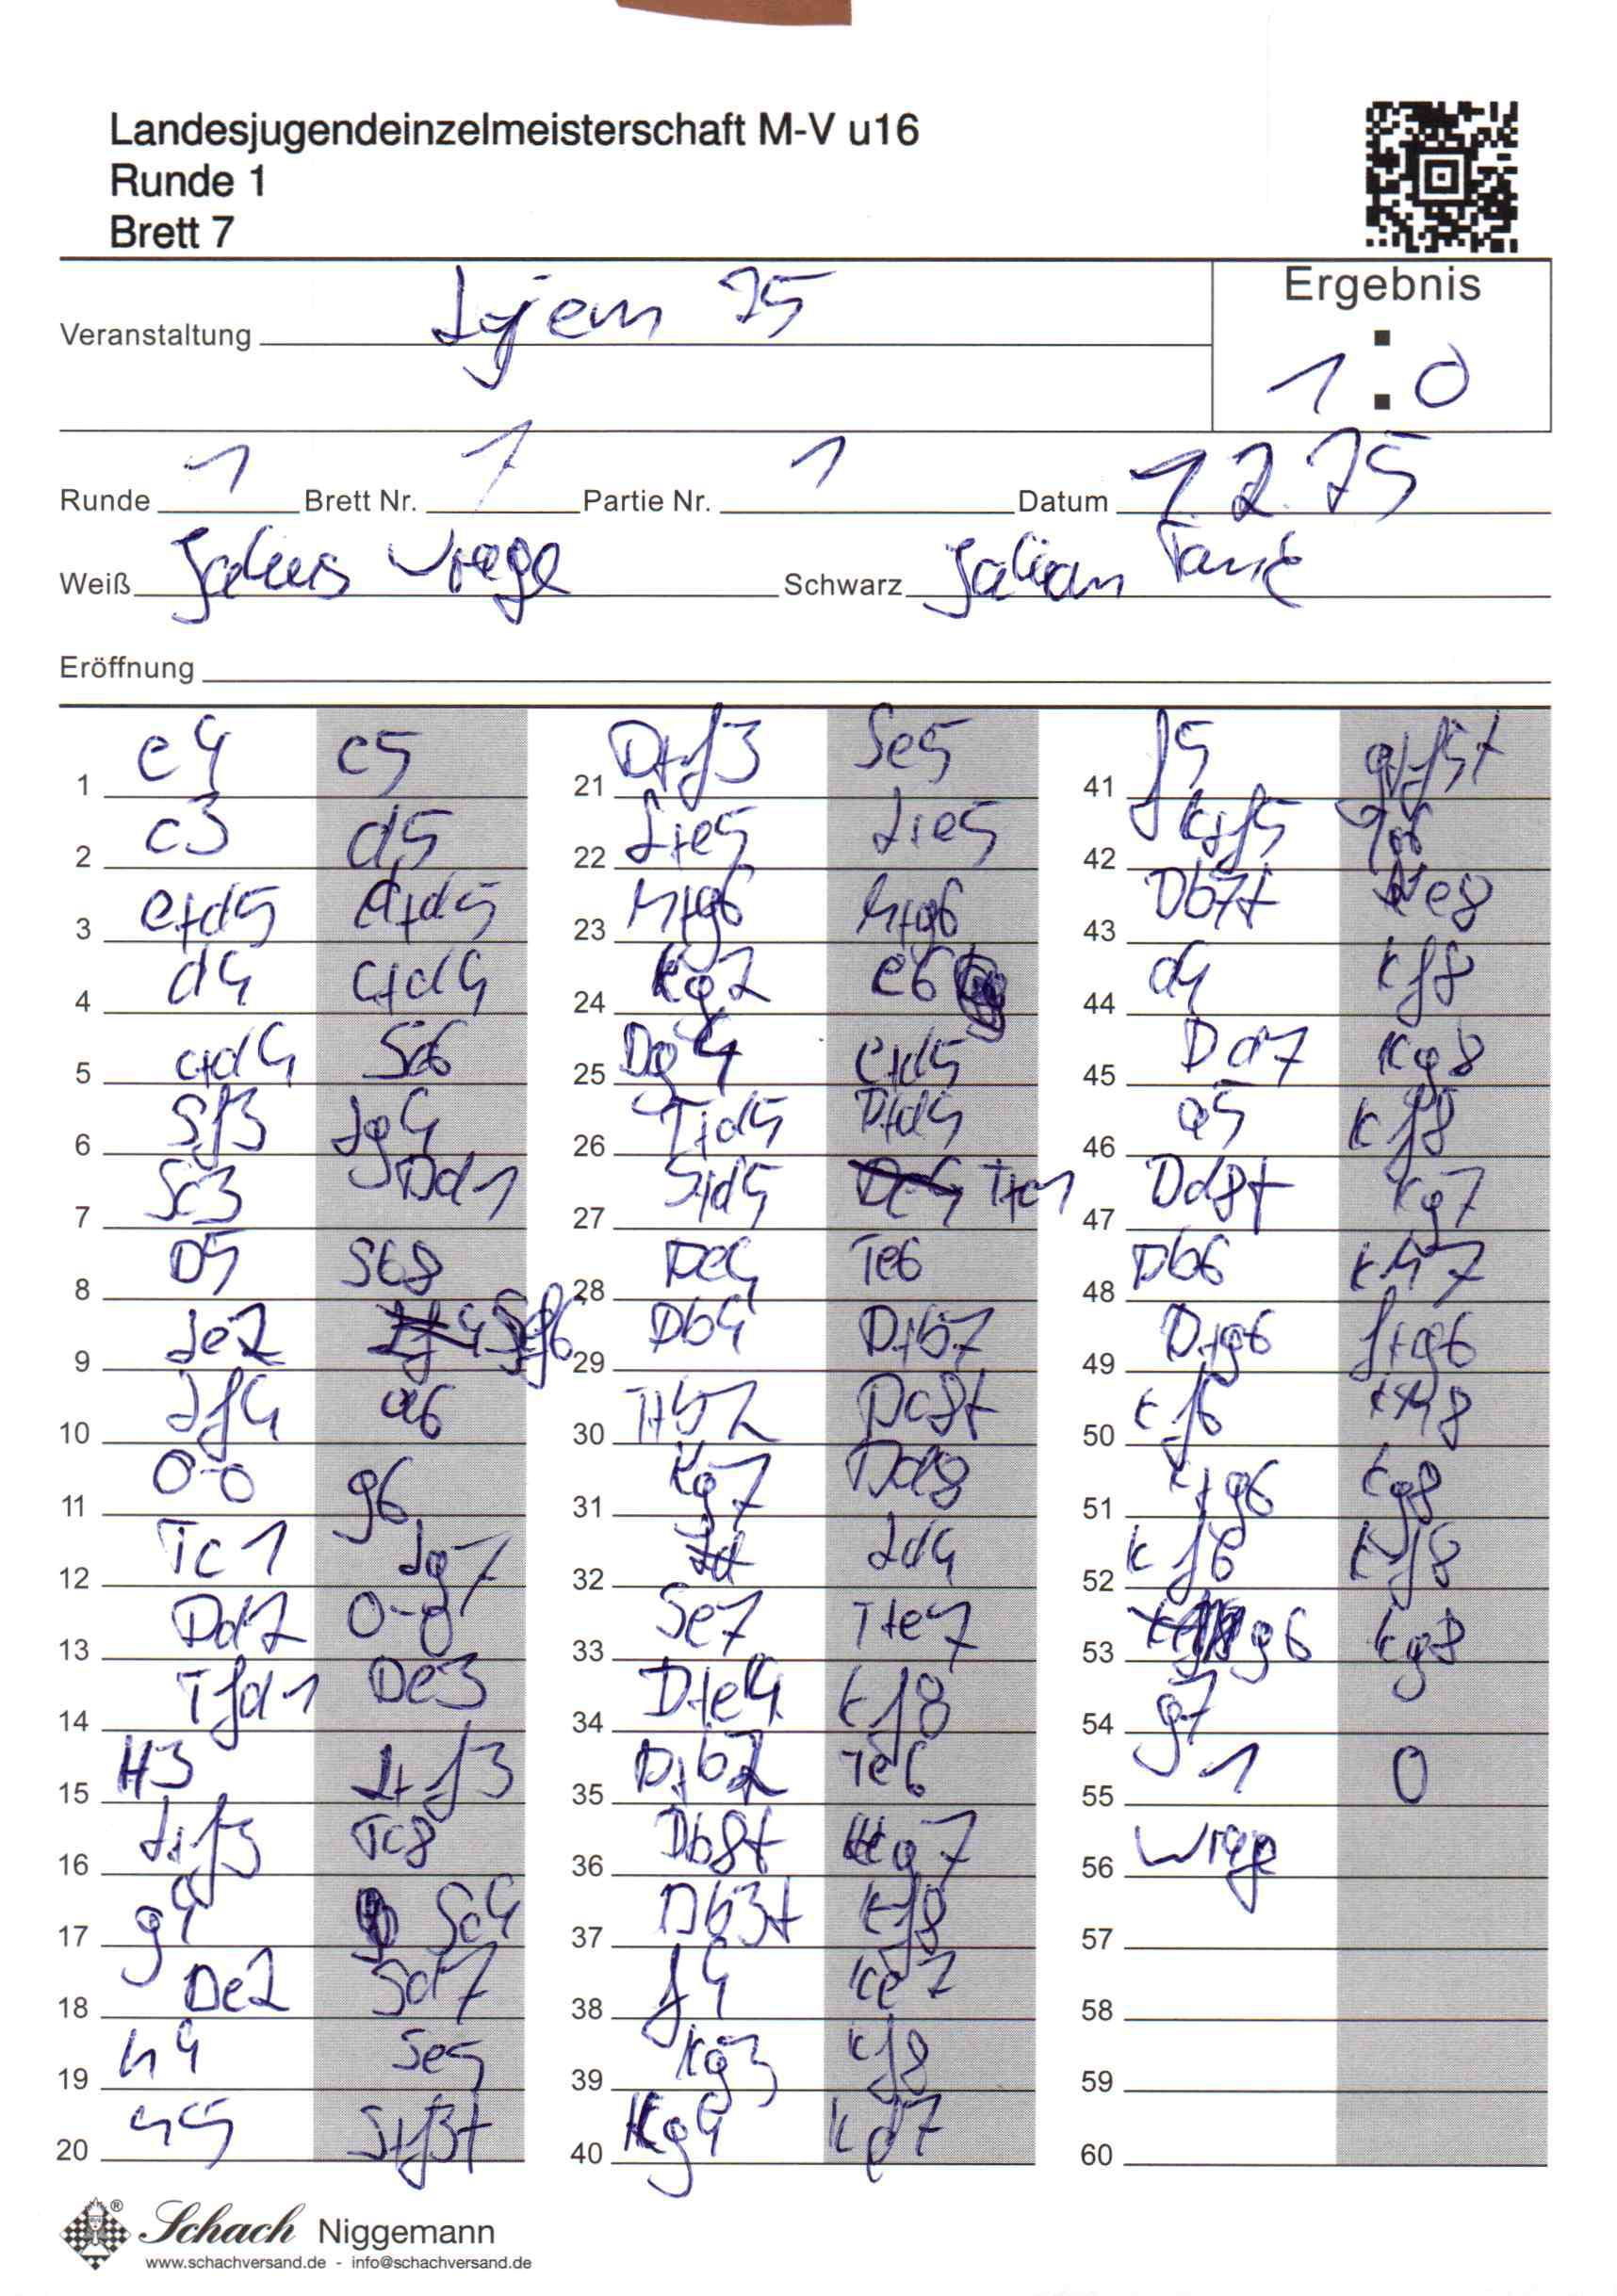 Landesjugendeinzelmeisterschaft M-V u16
Runde 1
Brett 7
Ergebnis
1:0
Veranstaltung Ljem 25
Runde 1 Brett Nr. 7 Partie Nr. 1 Datum 1.2.25
Weiß Wrege Schwarz Julian
Eröffnung
1 e4 c5
2 c3 d5
3 e+d5 d+d5
4 d4 c+d4
5 c+d4 Sc6
6 Sf3 Lg4
7 Sc3 Dd1
8 D5 Sb8
9 Le2 Sf6
10 Lf4 a6
11 0-0 g6
12 Tc1 Lg7
13 Dd2 0-0
14 Tfd1 De3
15 H3 L+f3
16 L+f3 Tc8
17 g4 Sc4
18 De2 Sd7
19 h4 Se5
20 h5 S+f3+
21 D+f3 Se5
22 L+e5 L+e5
23 h+g6 h+g6
24 Kg2 e6
25 Dg4 e+d5
26 T+d5 D+d5
27 S+d5 T+c1
28 De4 Te6
29 Db4 D+b7
30 T+b2 Dc8+
31 Kg7 Dd8
32 Ld4
33 Se7 T+e7
34 D+e4 Kf8
35 D+b2 Te6
36 Db8+ Kg7
37 Db3+ Kf8
38 f4 Ke7
39 Kg3 Kf8
40 Kg4 Kd7
41 f5 g+f5+
42 K+f5
43 Db7+ Ke8
44 a4 Kf8
45 Dd7 Kg8
46 a5 Kf8
47 Dd8+ Kg7
48 Db6 Kh7
49 D+g6 f+g6
50 Kf6 Kh8
51 K+g6 Kg8
52 Kf6 Kf8
53 g6 Kg8
54 g7
55 1 0
56
57
58
59
60
Schach Niggemann
www.schachversand.de - info@schachversand.de